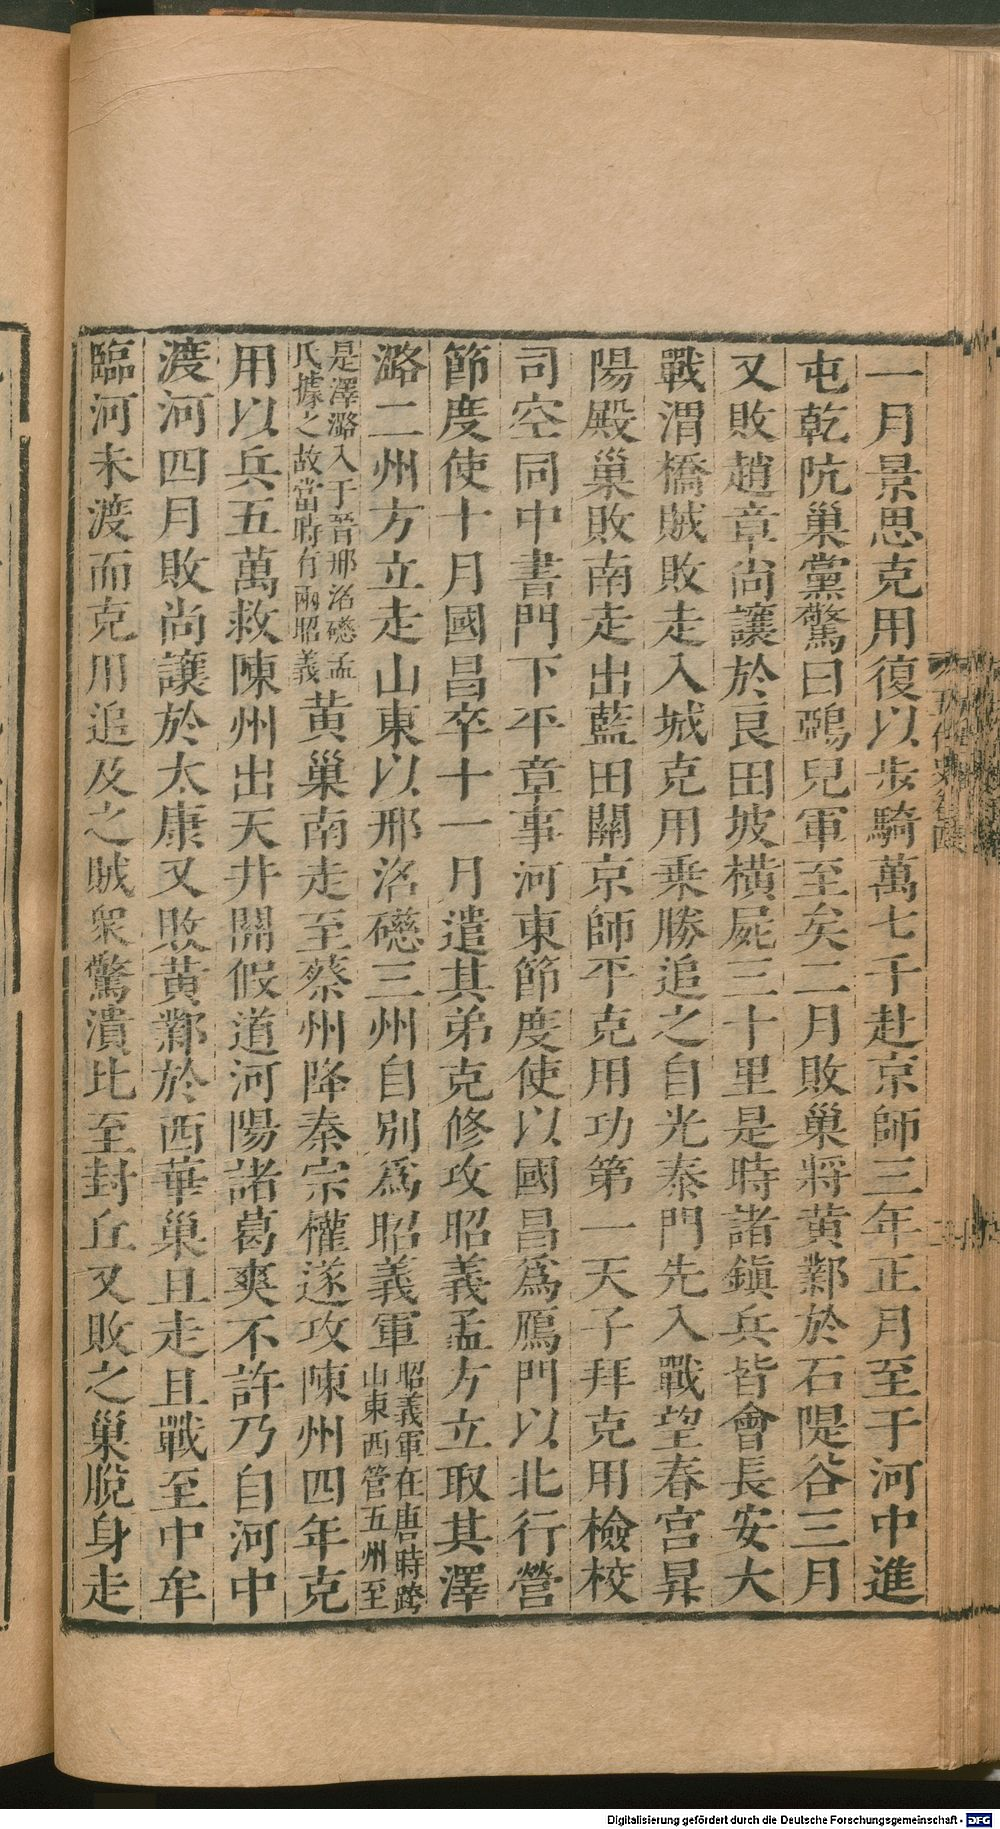 一月景思克用復以步騎萬七千赴京師三年正月至于河中進
屯乾阬巢黨驚曰鵶兒軍至矣二月敗巢將黄鄴於石隄谷三月
又敗趙章尚讓於良田坡橫屍三十里是時諸鎮兵皆會長安大
戰渭橋賊敗走入城克用乗勝追之自光泰門先入戰望春宫昇
陽殿巢敗南走出藍田關京師平克用功第一天子拜克用檢校
司空同中書門下平章事河東節度使以國昌爲鴈門以北行營
節度使十月國昌卒十一月遣其弟克修攻昭義孟方立取其澤
潞二州方立走山東以邢洺礠三州自別爲昭義軍昭義軍在唐時跨
山東西管五州至
是澤潞入于晉邢洺礠孟
氏據之故當時有兩昭義黄巢南走至蔡州降秦宗權遂攻陳州四年克
用以兵五萬救陳州出天井關假道河陽諸葛爽不許乃自河中
渡河四月敗尚讓於太康又敗黄鄴於西華巢且走且戰至中牟
臨河未渡而克用追及之賊衆驚潰比至封丘又敗之巢脫身走
Digitalisierung gefördert durch die Deutsche Forschungsgemeinschaft - DFG